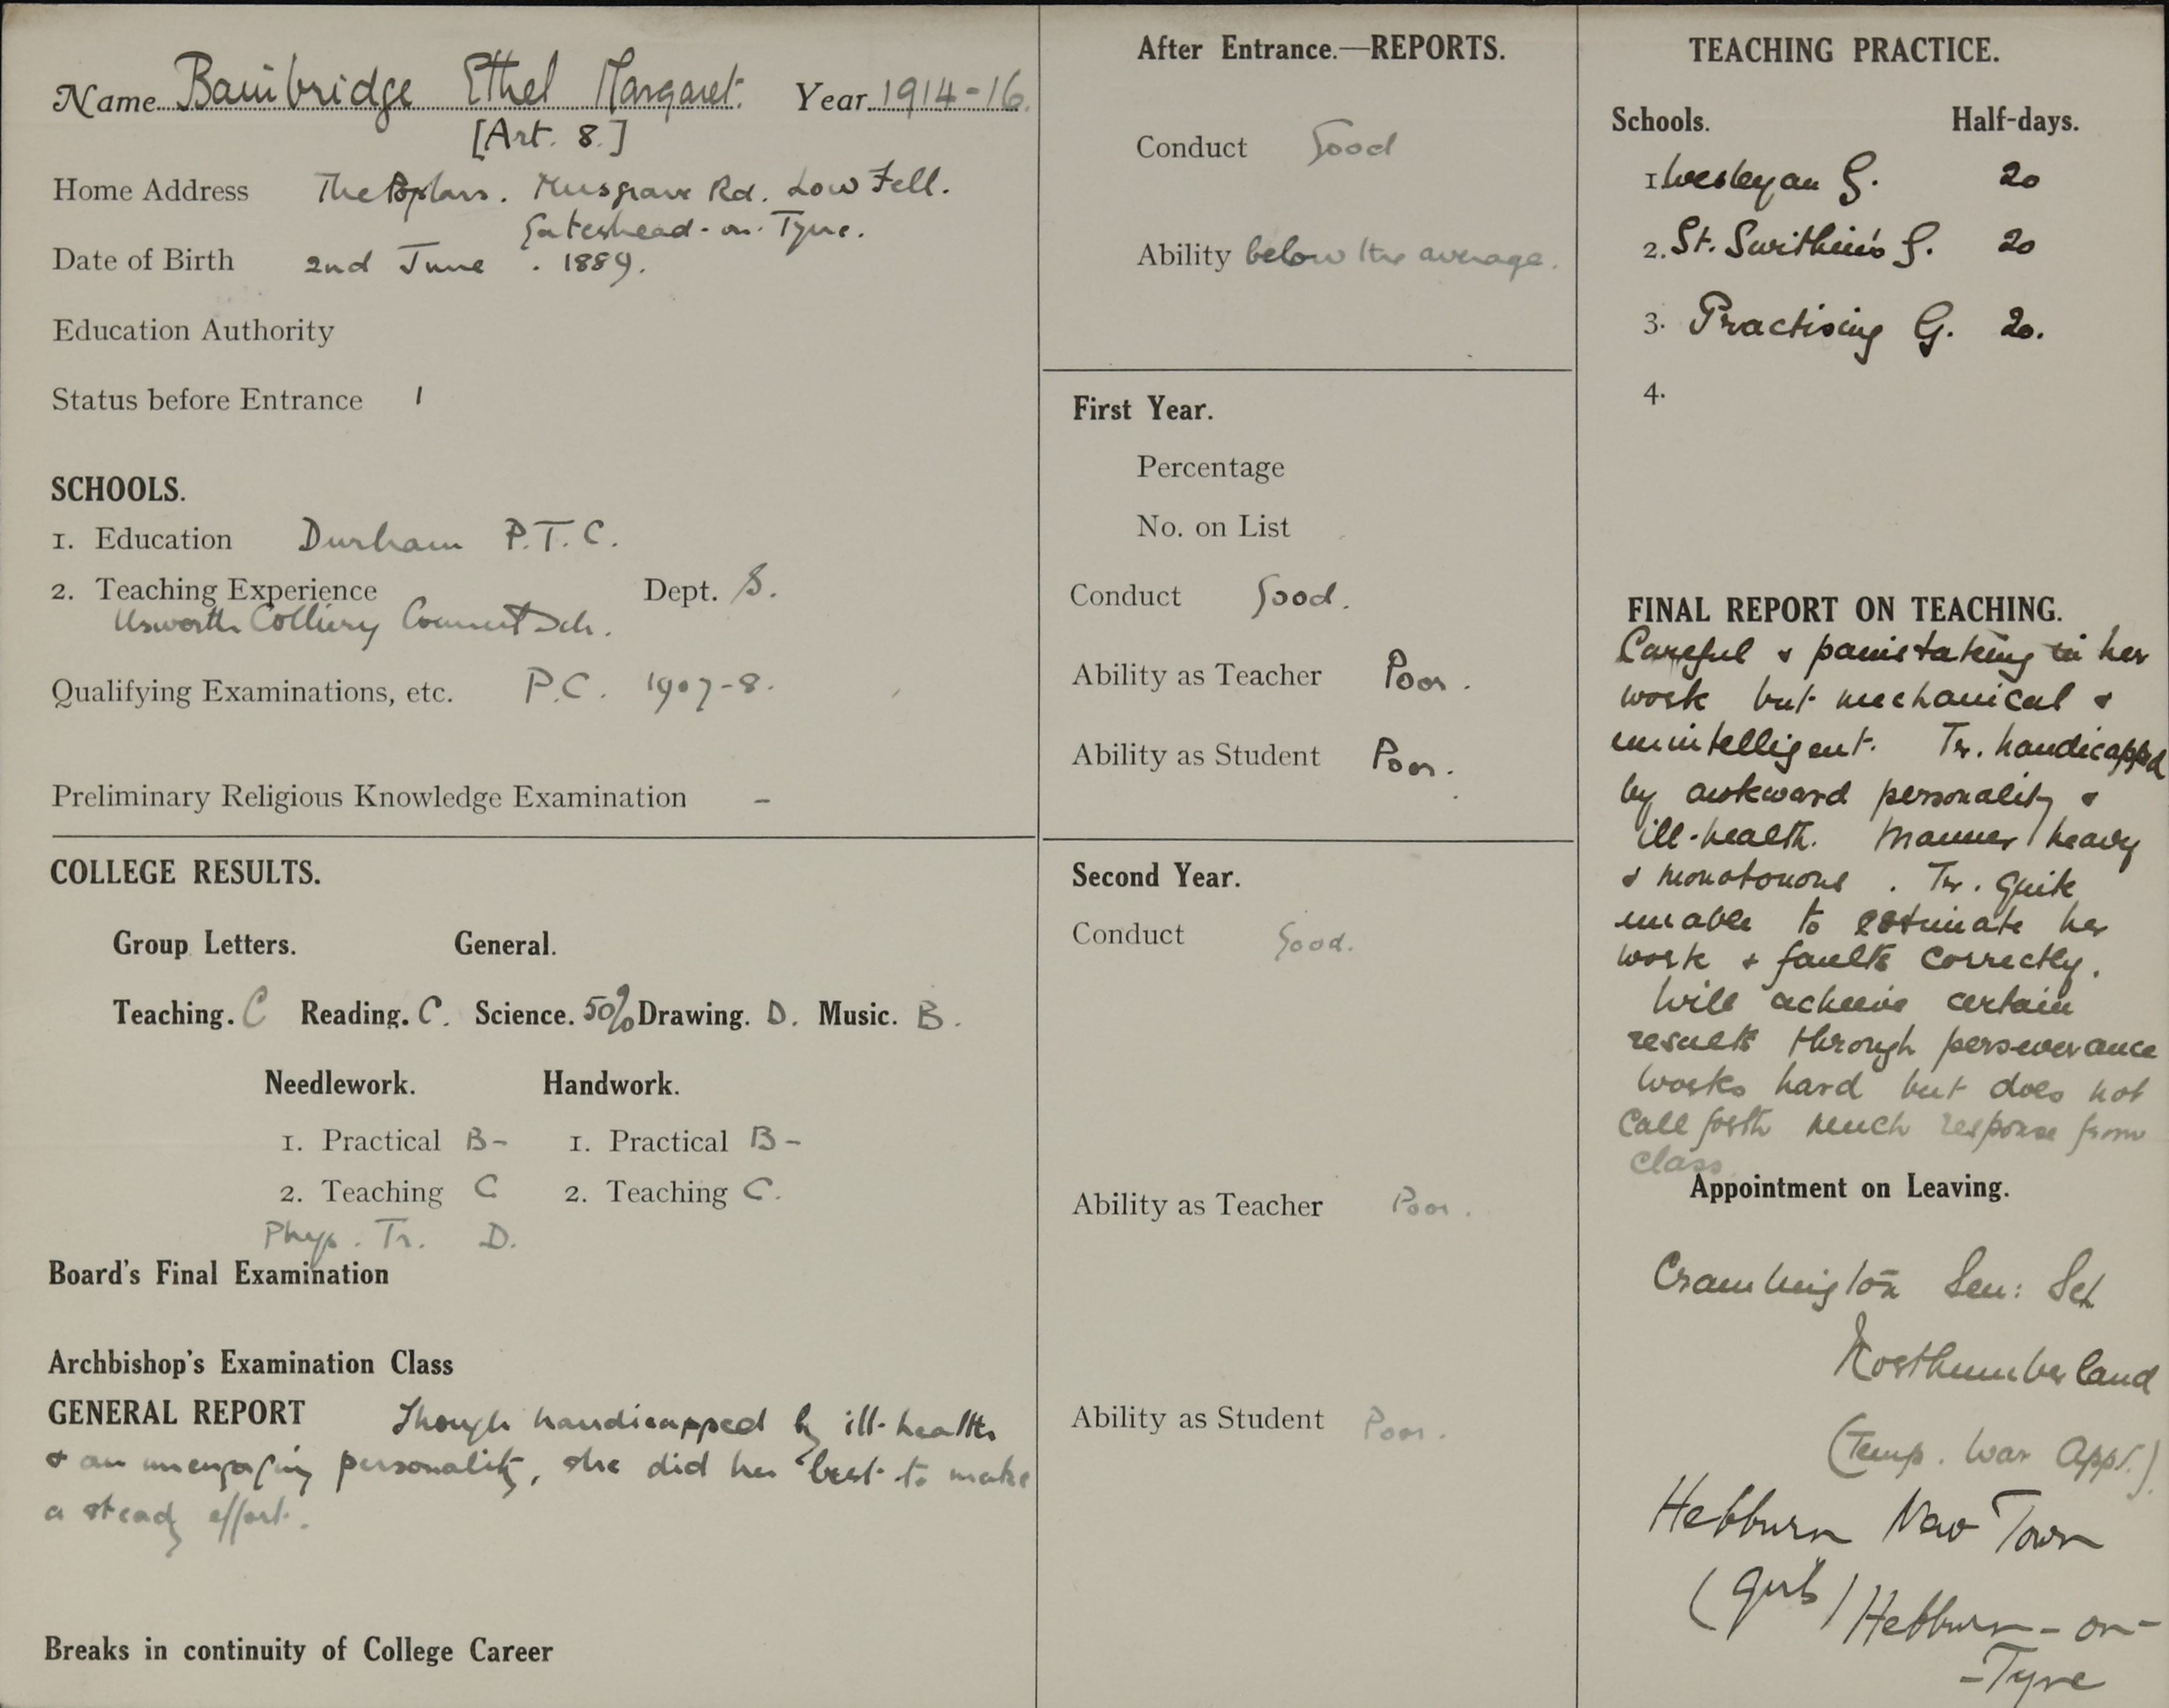 Name Bainbridge Ethel Margaret. Year 1914-16.
[Art. 8.]
Home Address The Poplars. Musgrave Rd. Low Fell.
Gateshead-on-Tyne.
Date of Birth 2nd June . 1889.
Education Authority
Status before Entrance 1
SCHOOLS.
1. Education Durham P.T.C.
2. Teaching Experience Dept. S.
Usworth Colliery Council Sch.
Qualifying Examinations, etc. P.C. 1907-8.
Preliminary Religious Knowledge Examination -
COLLEGE RESULTS.
Group Letters. General.
Teaching. C Reading. C. Science. 50% Drawing. D. Music. B.
Needlework. Handwork.
1. Practical B- 1. Practical B-
2. Teaching C 2. Teaching C.
Phys. Tr. D.
Board's Final Examination
Archbishop's Examination Class
GENERAL REPORT Though handicapped by ill-health
& an unengaging personality, she did her best to make
a steady effort.
Breaks in continuity of College Career
After Entrance.—REPORTS.
Conduct Good
Ability below the average.
First Year.
Percentage
No. on List
Conduct Good.
Ability as Teacher Poor.
Ability as Student Poor.
Second Year.
Conduct Good.
Ability as Teacher Poor.
Ability as Student Poor.
TEACHING PRACTICE.
Schools. Half-days.
1 Wesleyan G. 20
2. St. Swithin's G. 20
3. Practising G. 20.
4.
FINAL REPORT ON TEACHING.
Careful & painstaking in her
work but mechanical &
unintelligent. Tr. handicapped
by awkward personality &
ill-health. Manner heavy
& monotonous. Tr. quite
unable to estimate her
work & faults correctly.
Will achieve certain
results through perseverance
Works hard but does not
call forth much response from
class
Appointment on Leaving.
Cramlington Sen: Sch
Northumberland
(Temp. War Appt.)
Hebburn New Town
(girls) Hebburn-on-
-Tyne